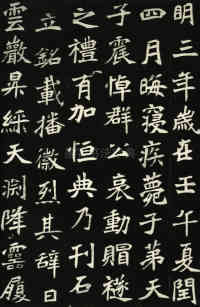 明三年歲在壬午夏閏
四月晦寢疾薨于第天
子震悼群公哀動賵襚
之禮有加恒典乃刊石
立銘載播徽烈其辭曰
雲巖昇綵天渊降靈履